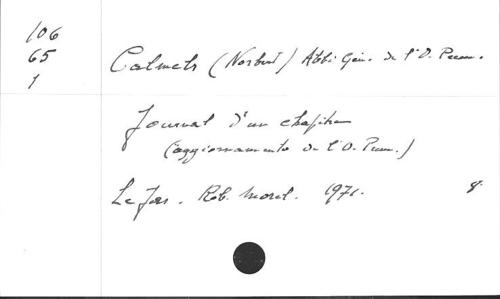 106
65
1
Calmels (Norbert) Abbé Gén. de l'O. Prem.
Journal d'un chapitre
(aggiornamento de l'O. Prem.)
Le Jas. Rob. Morel. 1971. 8.